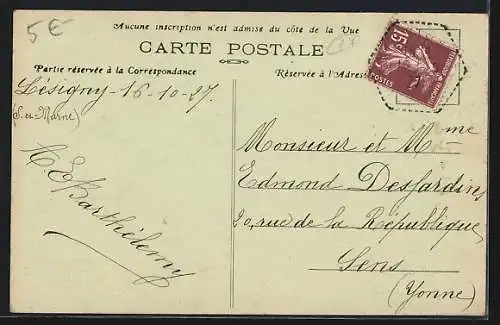 5€
Aucune inscription n'est admise du côté de la Vue
CARTE POSTALE
Partie réservée à la Correspondance
Réservée à l'Adresse
15c
POSTES
Lésigny 16-10-27.
(S.-et-Marne)
E Barthélemy
Monsieur et Mme
Edmond Desjardins
20, rue de la République
Sens
(Yonne)